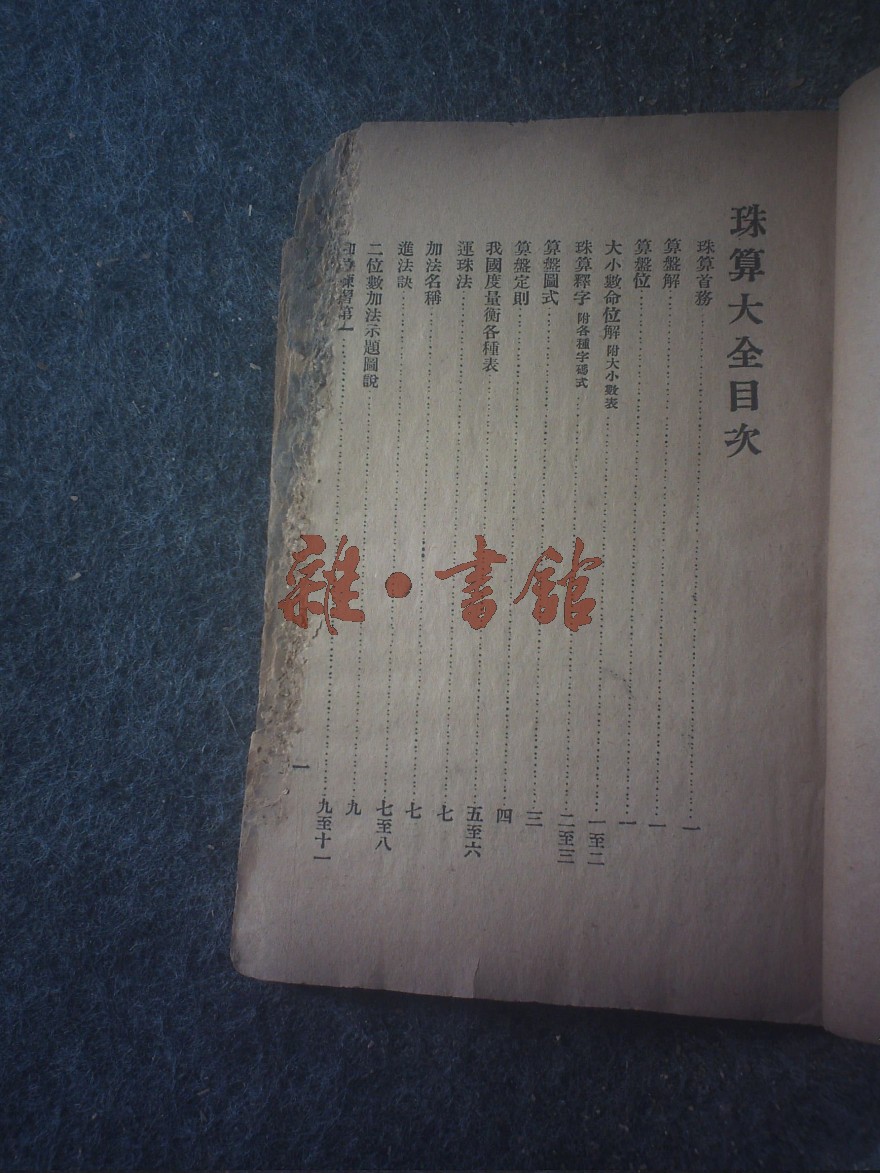 珠算大全目次
珠算首務……一
算盤解……一
算盤位……一
大小數命位解 附大小數表……一至二
珠算釋字 附各種字碼式……二至三
算盤圖式……三
算盤定則……四
我國度量衡各種表……五至六
運珠法……七
加法名稱……七
進法訣……七至八
二位數加法示題圖說……九
練習第一……九至十一
一
雜·書館